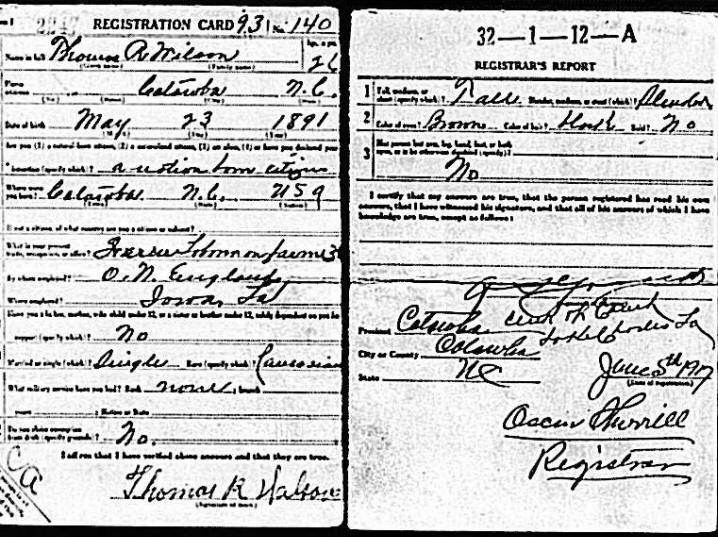 2247 REGISTRATION CARD 931 No. 140
Name in full Thomas R Wilson 26
(Given name) (Family name)
Catawba N.C.
Date of birth May 23 1891
Are you (1) a natural-born citizen, (2) a naturalized citizen, (3) an alien, (4) or have you declared your
intention (specify which)? a nation born citizen
Where were you born? Catawba N.C. USA
If not a citizen, of what country are you a citizen or subject?
What is your present trade, occupation, or office? on farm
By whom employed? O.N. England
Where employed? Iowa, La
Have you a father, mother, wife, child under 12, or a sister or brother under 12, solely dependent on you for
support (specify which)? No
Married or single (which)? Single Race (specify which)? Caucasian
What military service have you had? Rank none ; branch
years ; Nation or State
Do you claim exemption from draft (specify grounds)? No.
I affirm that I have verified above answers and that they are true.
Thomas R Watson
(Signature or mark)
32—1—12—A
REGISTRAR'S REPORT
1 Tall, medium, or short (specify which)? Tall Slender, medium, or stout (which)? Slender
2 Color of eyes? Brown Color of hair? Bald? No
3 Has person lost arm, leg, hand, foot, or both eyes, or is he otherwise disabled (specify)?
No
I certify that my answers are true, that the person registered has read his own
answers, that I have witnessed his signature, and that all of his answers of which I have
knowledge are true, except as follows:
Precinct Catawba Clerk of Court
City or County Catawba
State NC June 5th 1917
(Date of registration)
Oscar Sherrill
Registrar